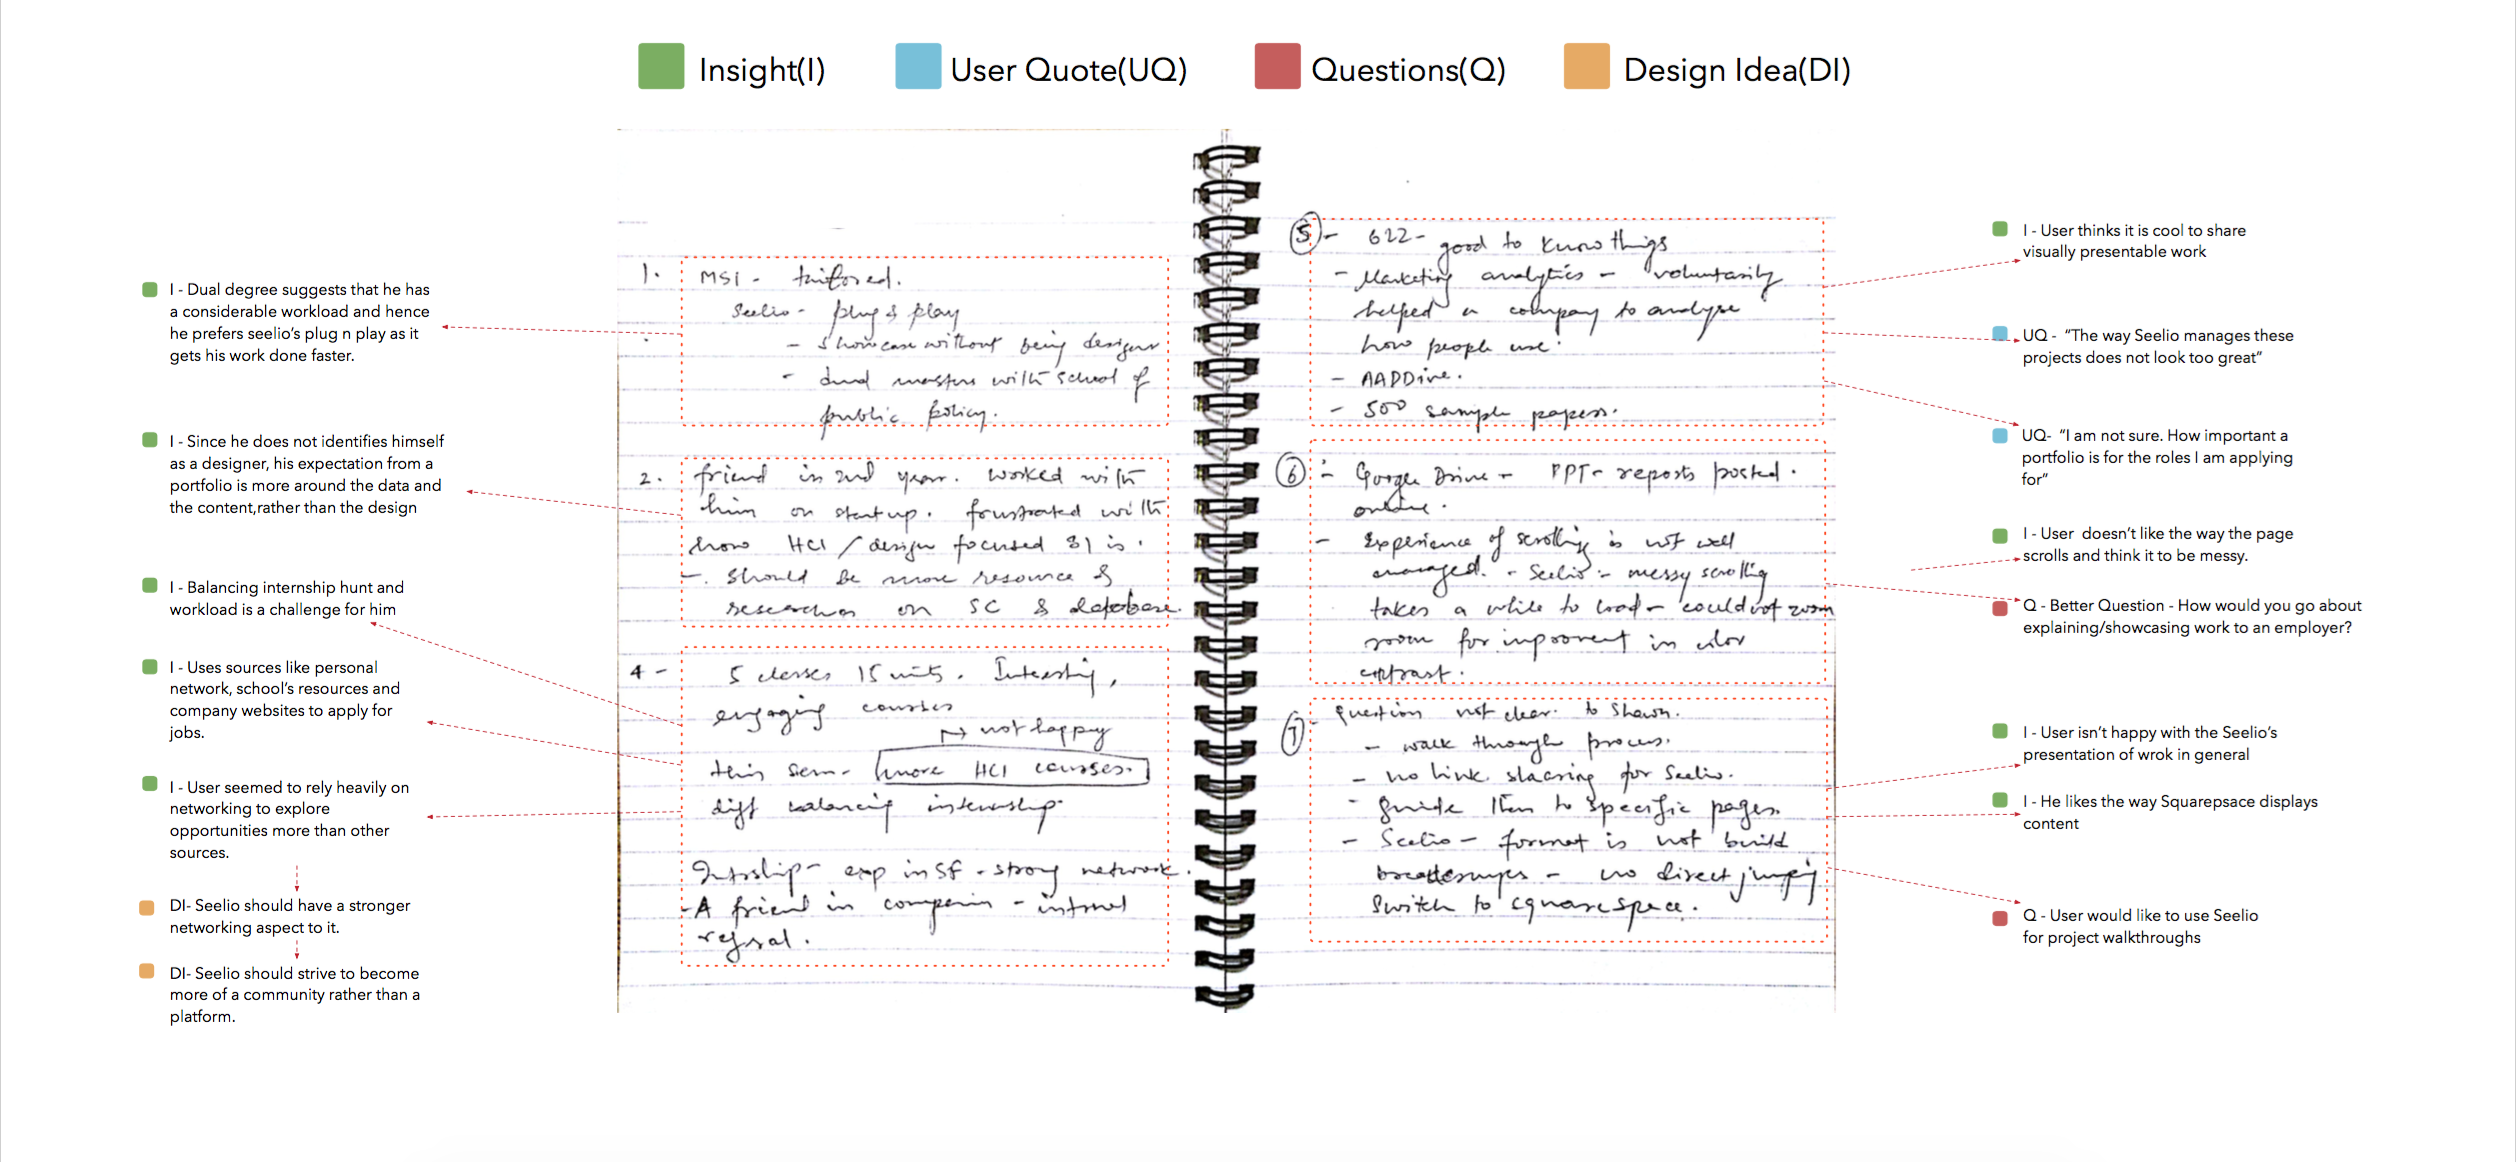 Insight(I)
User Quote(UQ)
Questions(Q)
Design Idea(DI)
I - Dual degree suggests that he has
a considerable workload and hence
he prefers seelio's plug n play as it
gets his work done faster.
I - Since he does not identifies himself
as a designer, his expectation from a
portfolio is more around the data and
the content,rather than the design
I - Balancing internship hunt and
workload is a challenge for him
I - Uses sources like personal
network, school's resources and
company websites to apply for
jobs.
I - User seemed to rely heavily on
networking to explore
opportunities more than other
sources.
DI- Seelio should have a stronger
networking aspect to it.
DI- Seelio should strive to become
more of a community rather than a
platform.
1. MSI - tailored.
Seelio - plug & play
- showcase without being designer
- dual masters with school of
public policy.
2. friend in 2nd year. worked with
him on startup. frustrated with
how HCI / design focused SI is.
- should be more resource &
researches on SC & database.
4 - 5 classes 15 units. Interesting,
engaging courses
→ not happy
this sem - more HCI courses.
diff balancing internship
Intrship - exp in SF - strong network.
- A friend in - internal
5 - 622 - good to know things
- Marketing analytics - voluntarily
helped a company to analyse
how people use.
- 500 sample papers.
6 - Google Drive - PPT - reports posted.
online.
- Experience of scrolling is not well
managed. - Seelio - messy scrolling
takes a while to load - could not zoom
room for in color
contrast.
7 - question not clear. to Shawn.
- walk through process.
- no link sharing for Seelio.
- guide them to specific pages.
- Seelio - format is not build
- no direct jumping
switch to squarespace.
I - User thinks it is cool to share
visually presentable work
UQ - "The way Seelio manages these
projects does not look too great"
UQ- "I am not sure. How important a
portfolio is for the roles I am applying
for"
I - User doesn't like the way the page
scrolls and think it to be messy.
Q - Better Question - How would you go about
explaining/showcasing work to an employer?
I - User isn't happy with the Seelio's
presentation of wrok in general
I - He likes the way Squarepsace displays
content
Q - User would like to use Seelio
for project walkthroughs